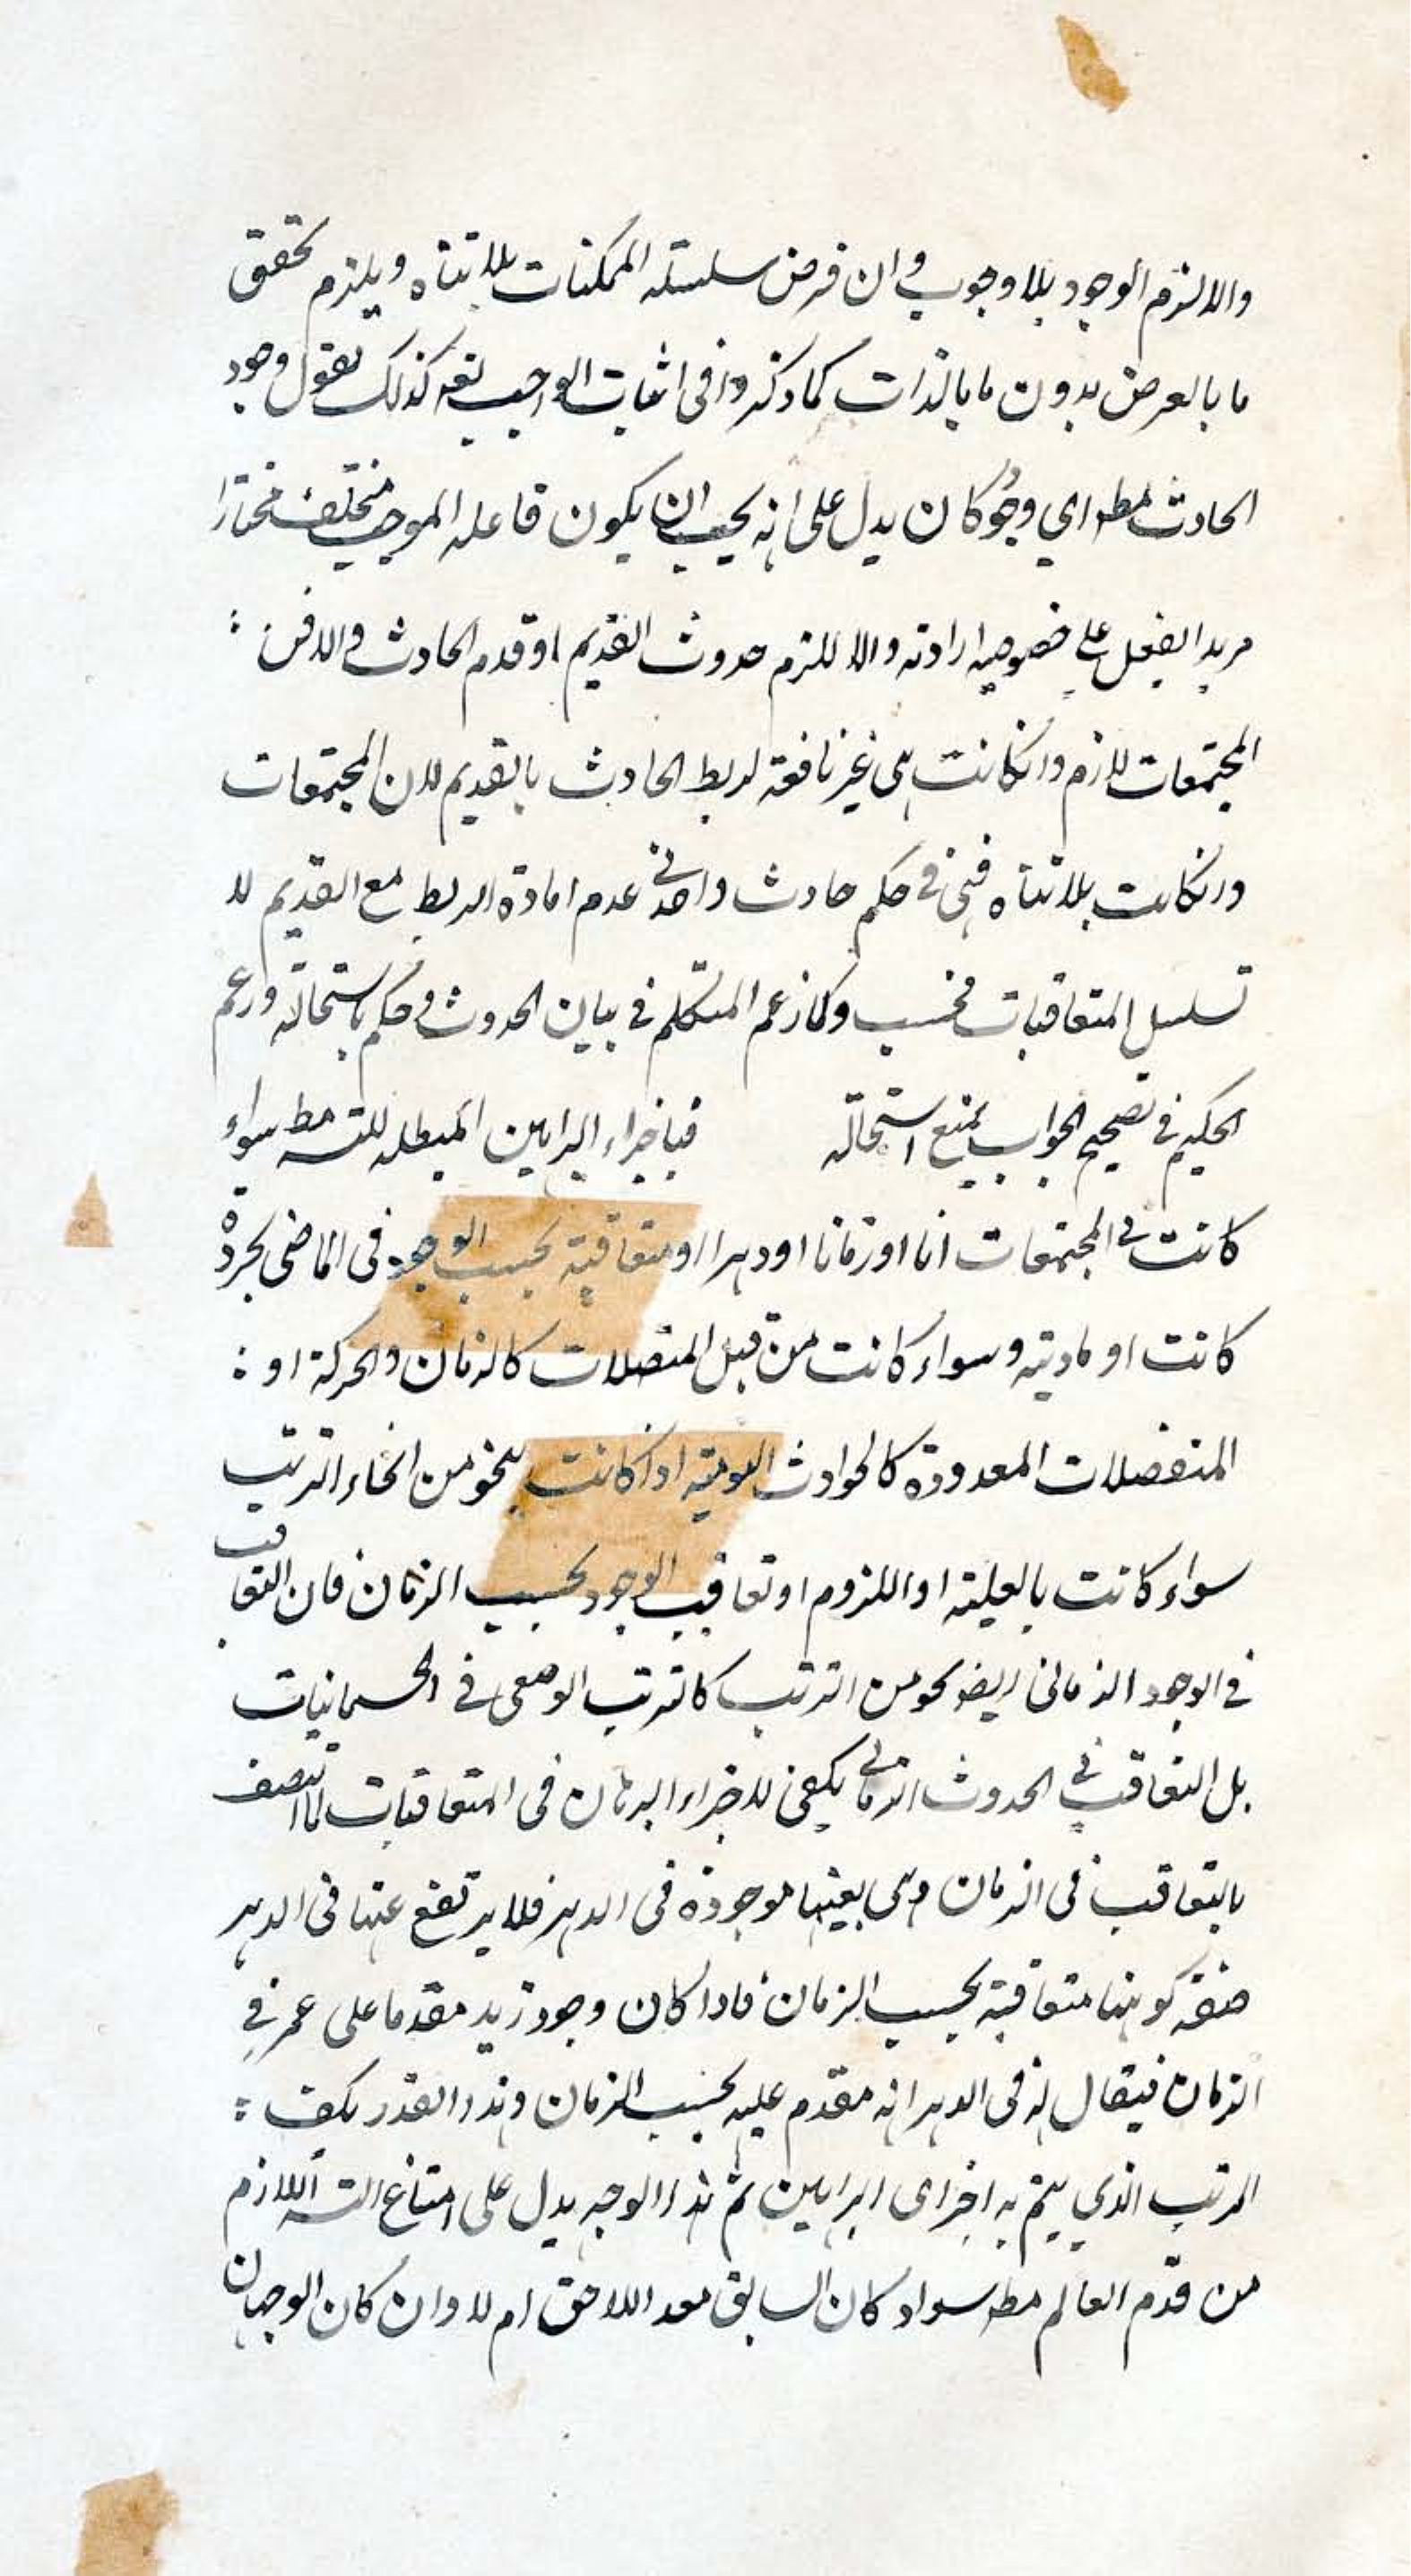 والا لزم الوجود بلا وجوب وان فرض سلسله الممكنات بلا تناه ويلزم تحقق
ما بالعرض بدون ما بالذات كما ذكروا فى اثبات الواجب تعه كذلك نقول وجود
الحادث مطه اي وجود كان يدل على انه يجب ان يكون فاعله الموجب مختارا
مريد الفعل على خصوصيه ارادته والا للزم حدوث القديم او قدم الحادث
المجتمعات لازم وانكانت هى غير نافعة لربط الحادث بالقديم لان المجتمعات
وانكانت بلا تناه فهى فى حكم حادث واحد فى عدم افادة الربط مع القديم لا
تسلسل المتعاقبات فحسب وكما زعم المتكلم فى بيان الحدوث وحكم باستحالته وزعم
الحكيم فى تصحيح الجواب بمنع استحالته فباجراء البراهين المبطله للتسه مطه سواء
كانت فى المجتمعات انا او زمانا او دهرا او متعاقبة بحسب الوجود فى الماضى مجردة
كانت او ماديته وسواء كانت من قبل المتصلات كالزمان والحركة او :
المنفصلات المعدودة كالحوادث اليوميته اذا كانت بنحو من انحاء الترتب
سواء كانت بالعليته او اللزوم او تعاقب الوجود بحسب الزمان فان التعاقب
فى الوجود الزمانى ايضو نحو من الترتب كالترتب الوضعى فى الجسمانيات
بل التعاقب فى الحدوث الزمانى يكفى لاجراء البرهان فى المتعاقبات لما اتصف
بالتعاقب فى الزمان وهى بعينها موجودة فى الدهر فلا يرتفع عنها فى الدهر
صفة كونها متعاقبة بحسب الزمان فاذا كان وجود زيد مقدما على عمر فى
الزمان فيقال له فى الدهر انه مقدم عليه بحسب الزمان وهذا القدر يكفى :
المرتب الذي يتم به اجراى البراهين ثم هذا الوجه يدل على امتناع التسه اللازم
من قدم العالم مطه سواء كان السابق معد اللاحق ام لا وان كان الوجهان